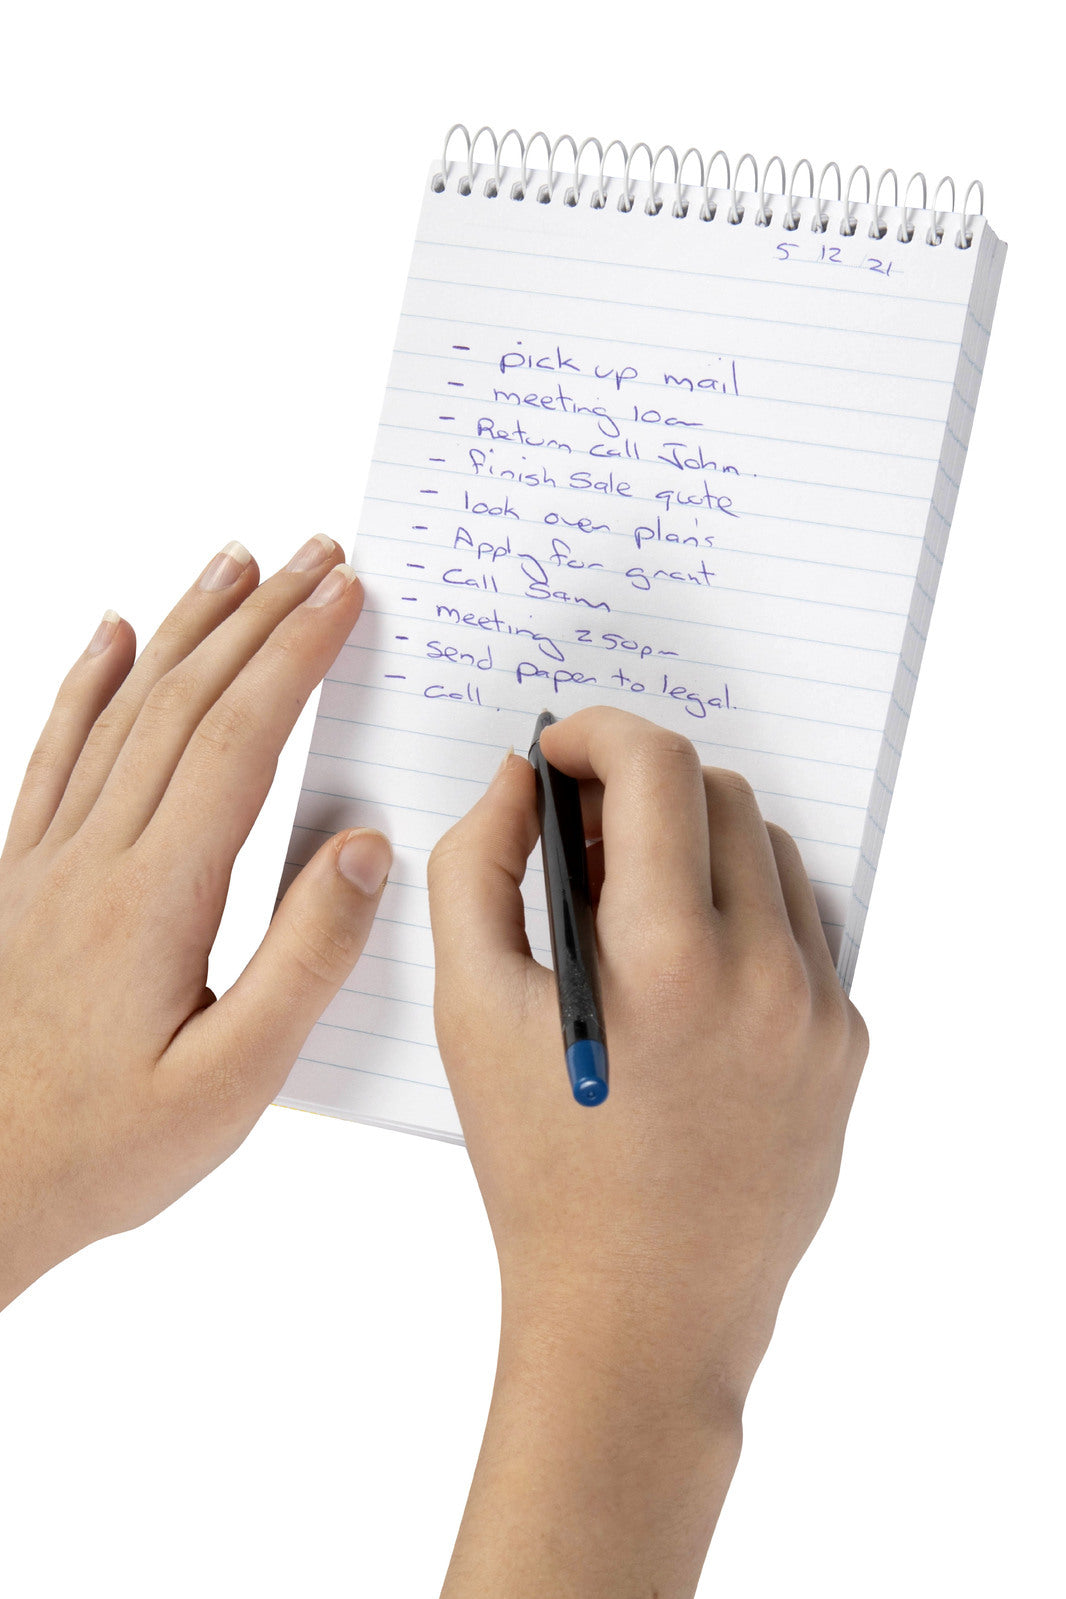 5 12 21
- pick up mail
- meeting 10am
- Return call John.
- finish Sale quote
- look over plans
- Apply for grant
- Call Sam
- meeting 250pm
- send paper to legal.
- call.